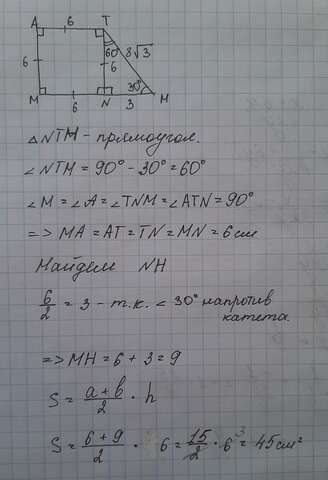 A 6 T
60° 8√3
6 6
30°
M 6 N 3 H
△NTH - прямоугол.
∠NTH = 90° - 30° = 60°
∠M = ∠A = ∠TNM = ∠ATN = 90°
=> MA = AT = TN = MN = 6 см
Найдем NH
6/2 = 3 - т.к. < 30° напротив
катета.
=> MH = 6 + 3 = 9
S = (a + b)/2 · h
S = (6 + 9)/2 · 6 = 15/2 · 6³ = 45 см²